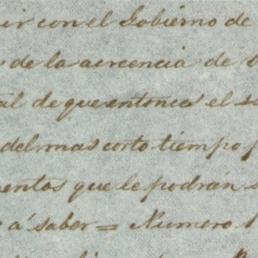 ir con el Gobierno de
de la aerencia de
al de que entonces el
del mas corto tiempo
entos que le podrán
á saber = Numero